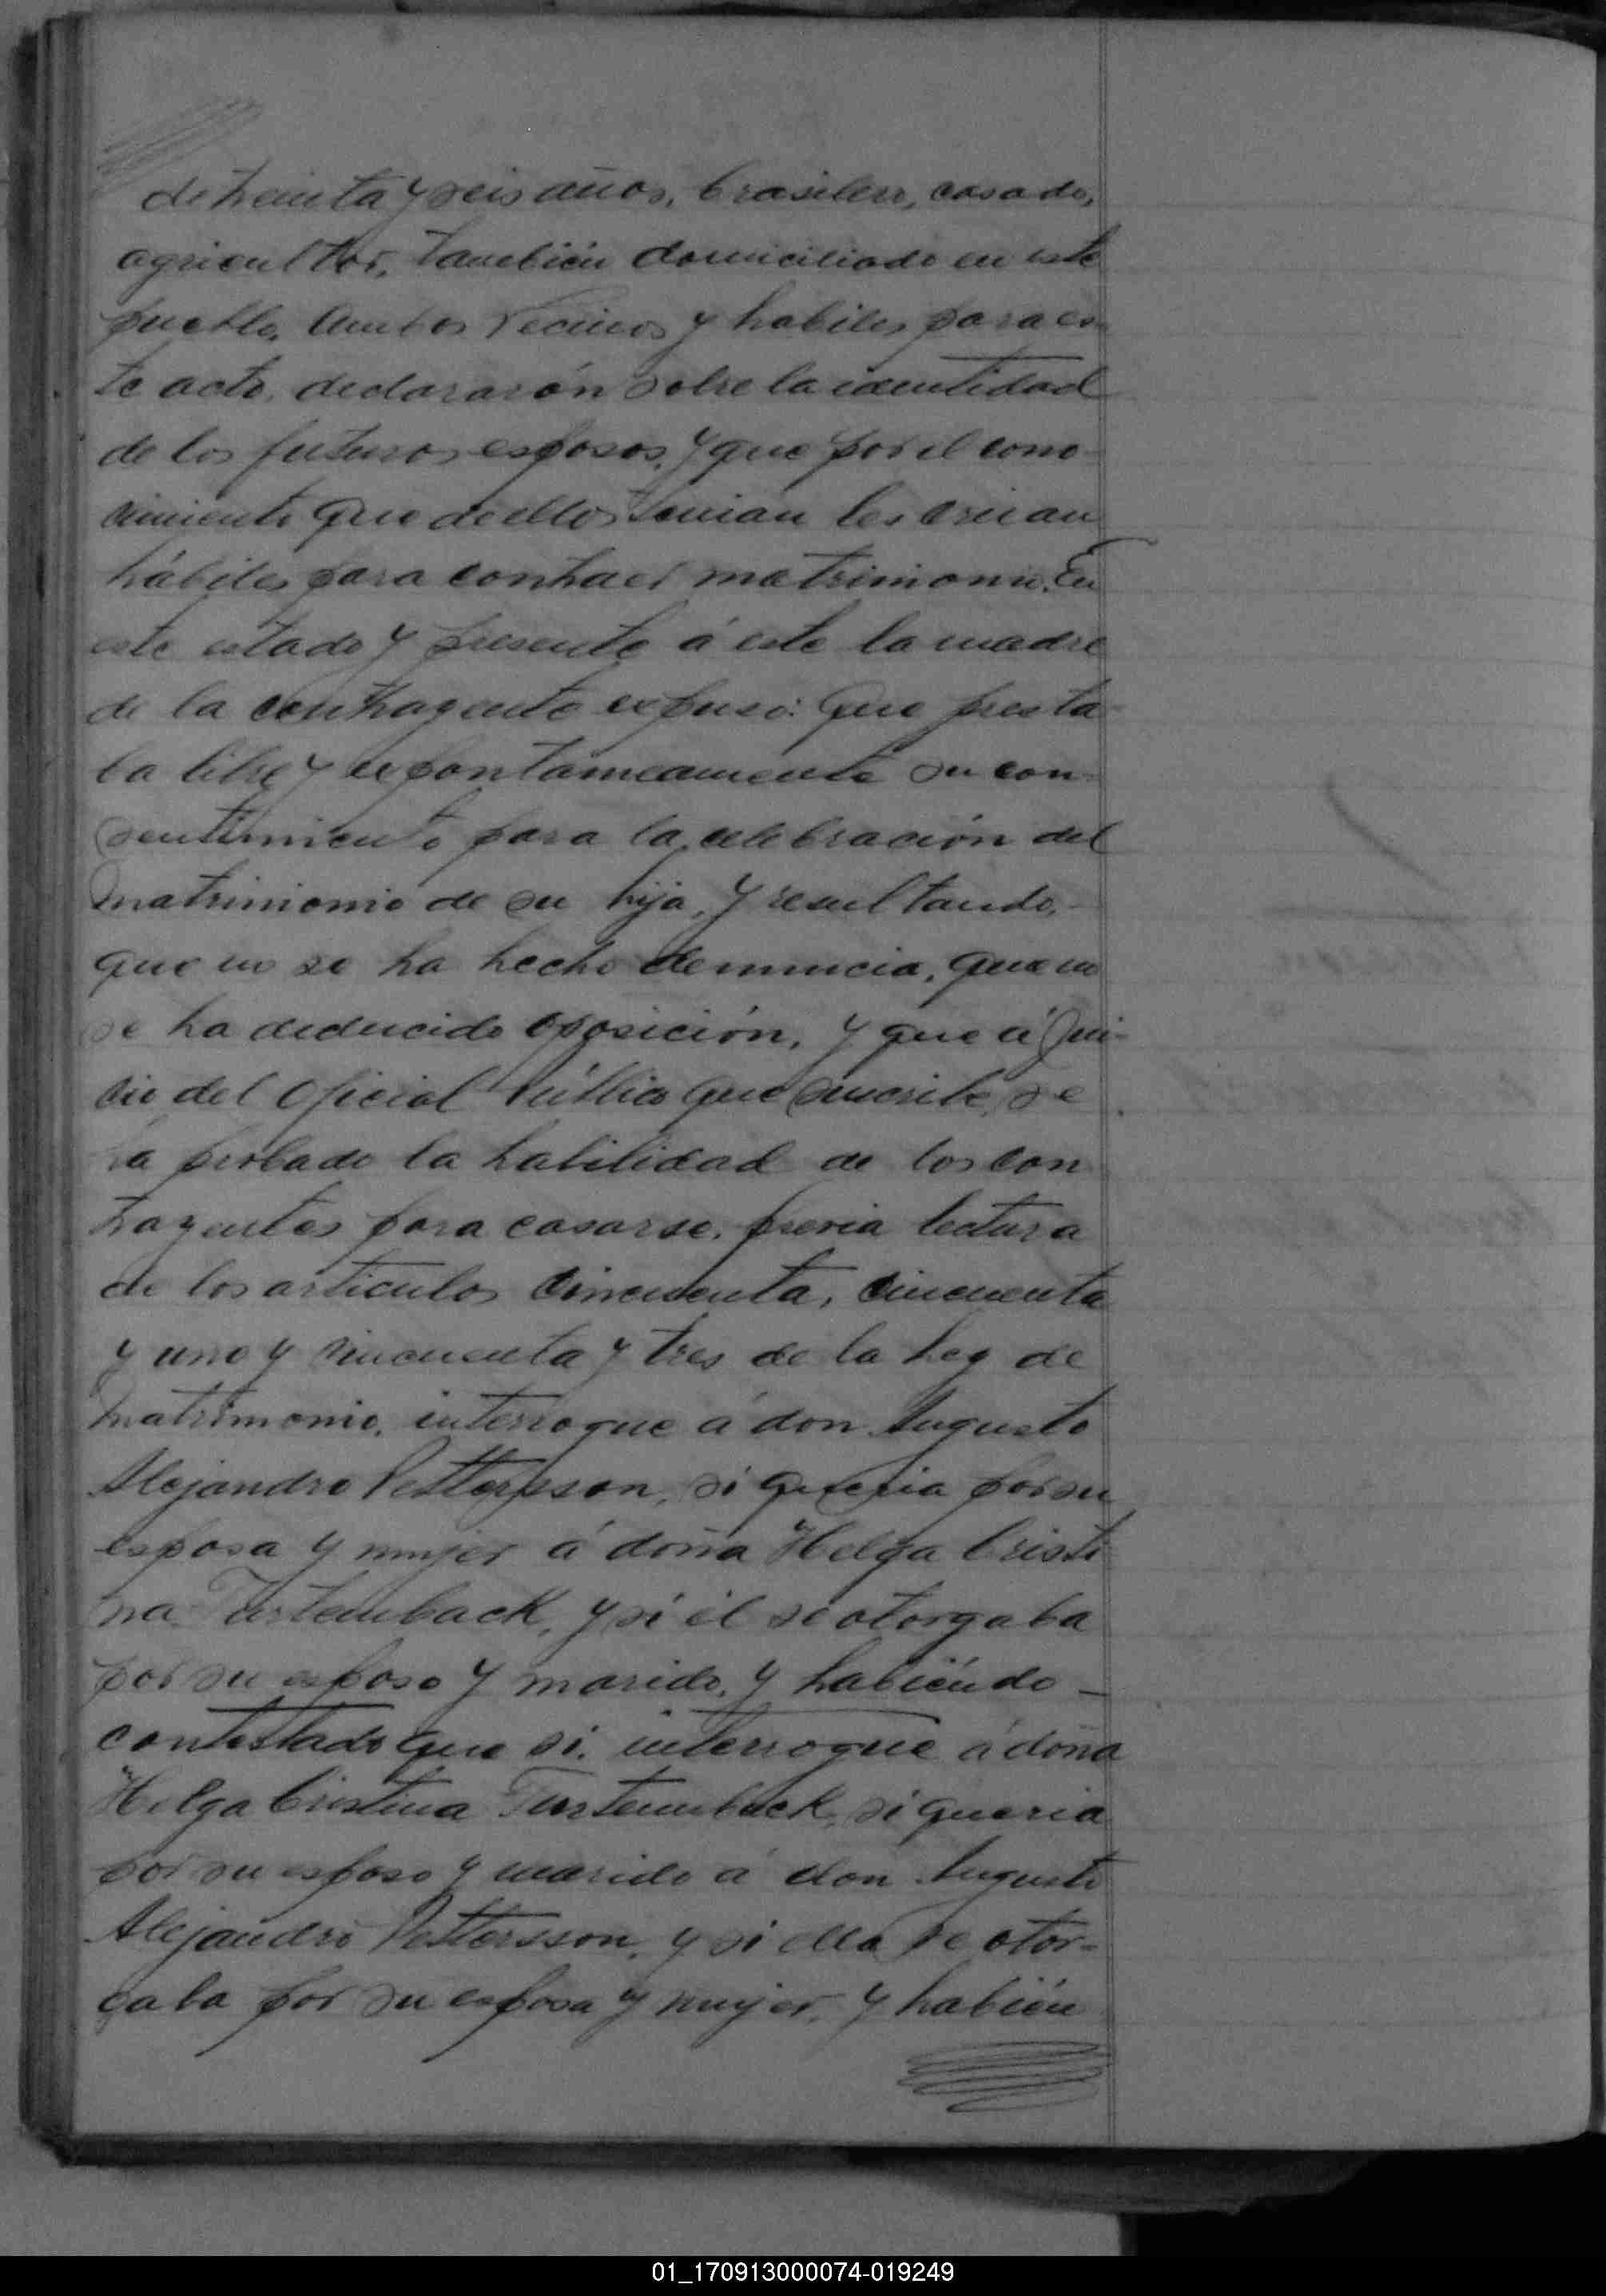 de treinta y seis años, brasilero, casado,
agricultor, también domiciliado en este
pueblo. Ambos vecinos y habiles para es
te acto, declararón sobre la identidad
de los futuros esposos, y que por el cono-
cimiento que de ellos tenian les creian
hábiles para contraer matrimonio. En
este estado y presente á este la madre
de la contrayente expuso: Que presta-
ba libre y expontaneamente su con-
sentimiento para la celebración del
matrimonio de su hija, y resultando,-
que no se ha hecho denuncia, que no
se ha deducido oposición, y que á jui-
cio del Oficial Público que suscribe, se
ha probado la habilidad de los con
trayentes para casarse, previa lectura
de los articulos cincuenta, cincuenta
y uno y cincuenta y tres de la Ley de
matrimonio, interrogue á don Augusto
Alejandro Pettersson, si queria por su
esposa y mujer á doña Helga Cristi
na Turtemback, y si él se otorgaba
por su esposo y marido, y habiéndo -
contestado que si, interrogue á doña
Helga Cristina Turtemback, si queria
por su esposo y marido á don Augusto
Alejandro Pettersson, y si ella se otor-
gaba por su esposa y mujer, y habién
01_170913000074-019249